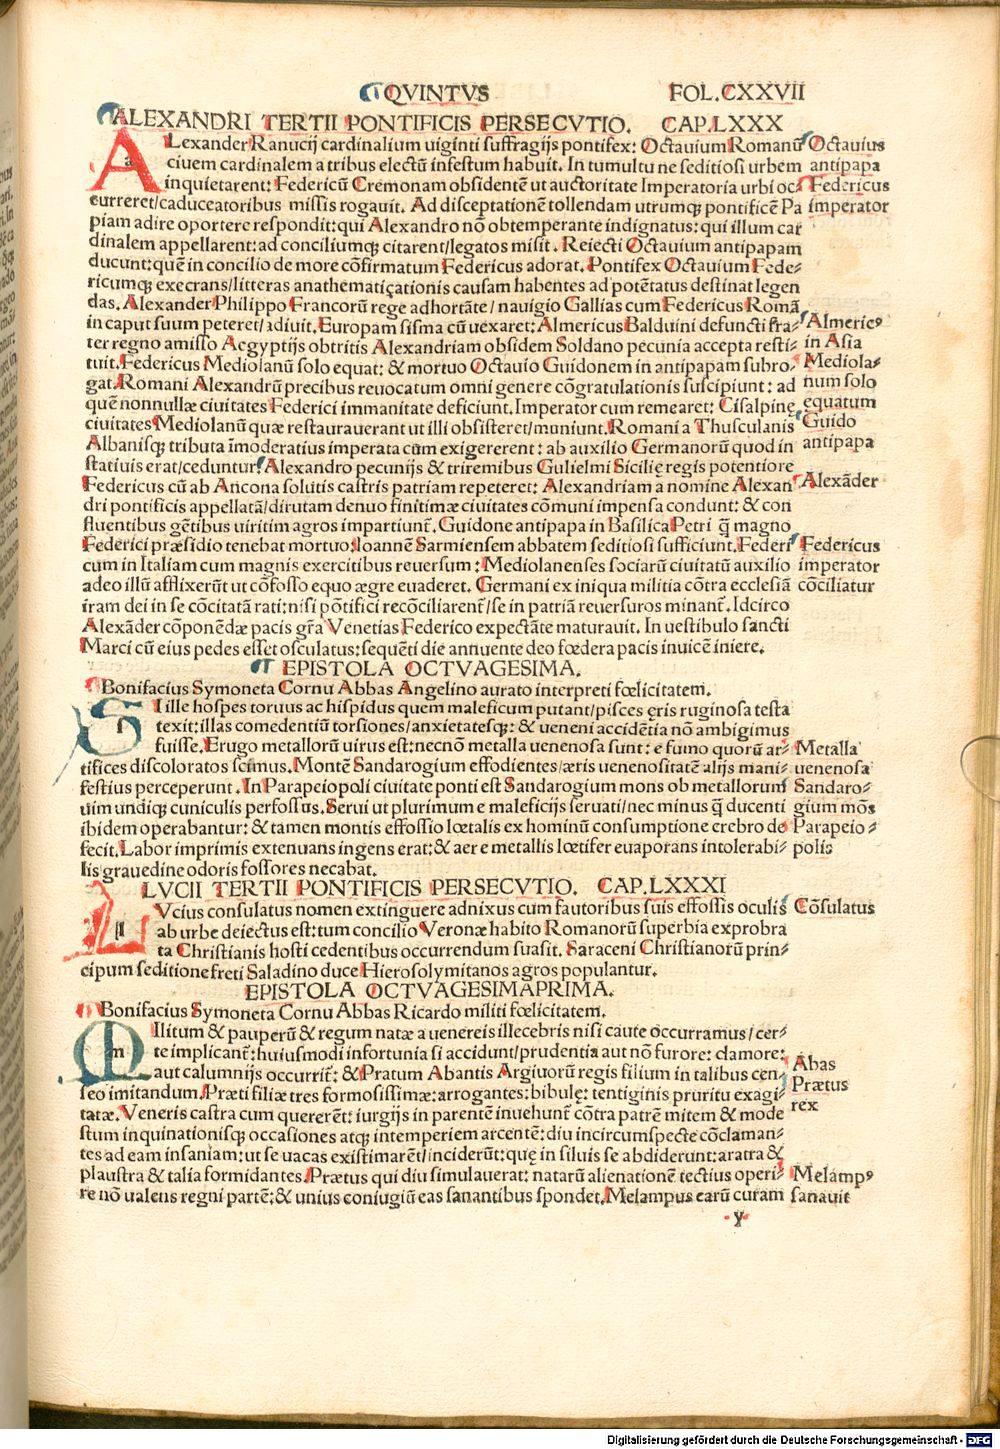 QVINTVS FOL.CXXVII
ALEXANDRI TERTII PONTIFICIS PERSECVTIO. CAP.LXXX
ALexander Ranucij cardinalium uiginti suffragijs pontifex: Octauium Romanū
ciuem cardinalem a tribus electū infestum habuit. In tumultu ne seditiosi urbem
inquietarent: Federicū Cremonam obsidentē ut auctoritate Imperatoria urbi oc-
curreret/caduceatoribus missis rogauit. Ad disceptationē tollendam utrumq; pontificē Pa
piam adire oportere respondit: qui Alexandro nō obtemperante indignatus: qui illum car
dinalem appellarent: ad conciliumq; citarent/legatos misit. Reiecti Octauium antipapam
ducunt: quē in concilio de more cōfirmatum Federicus adorat. Pontifex Octauium Fede-
ricumq; execrans/litteras anathematiçationis causam habentes ad potētatus destinat legen
das. Alexander Philippo Francorū rege adhortāte/nauigio Gallias cum Federicus Romā
in caput suum peteret/adiuit. Europam sisma cū uexaret: Almericus Balduini defuncti fra-
ter regno amisso Aegyptijs obtritis Alexandriam obsidem Soldano pecunia accepta resti-
tuit. Federicus Mediolanū solo equat: & mortuo Octauio Guidonem in antipapam subro-
gat. Romani Alexandrū precibus reuocatum omni genere cōgratulationis suscipiunt: ad
quē nonnullæ ciuitates Federici immanitate deficiunt. Imperator cum remearet: Cisalpine
ciuitates Mediolanū quæ restaurauerant ut illi obsisteret/muniunt. Romani a Thusculanis
Albanisq; tributa īmoderatius imperata cum exigererent: ab auxilio Germanorū quod in
statiuis erat/ceduntur. Alexandro pecunijs & triremibus Gulielmi Sicilię regis potentiore
Federicus cū ab Ancona solutis castris patriam repeteret: Alexandriam a nomine Alexan
dri pontificis appellatā/dirutam denuo finitimæ ciuitates cōmuni impensa condunt: & con
fluentibus gētibus uiritim agros impartiunt̄. Guidone antipapa in Basilica Petri q̄ magno
Federici præsidio tenebat mortuo: Ioannē Sarmiensem abbatem seditiosi sufficiunt. Federi
cum in Italiam cum magnis exercitibus reuersum: Mediolanenses sociarū ciuitatū auxilio
adeo illū afflixerūt ut cōfosso equo ægre euaderet. Germani ex iniqua militia cōtra ecclesiā
iram dei in se cōcitatā rati: nisi pōtifici recōciliarent̄/se in patriā reuersuros minant̄. Idcirco
Alexāder cōponēdæ pacis gr̄a Venetias Federico expectāte maturauit. In uestibulo sancti
Marci cū eius pedes esset osculatus: sequēti die annuente deo fœdera pacis inuicē iniere.
EPISTOLA OCTVAGESIMA.
Bonifacius Symoneta Cornu Abbas Angelino aurato interpreti fœlicitatem.
SI ille hospes toruus ac hispidus quem maleficum putant/pisces ęris ruginosa testa
texit: illas comedentiū torsiones/anxietatesq;: & ueneni accidētia nō ambigimus
fuisse. Erugo metallorū uirus est: necnō metalla uenenosa sunt: e fumo quorū ar-
tifices discoloratos scimus. Montē Sandarogium effodientes/æris uenenositatē alijs mani-
festius perceperunt. In Parapeiopoli ciuitate ponti est Sandarogium mons ob metallorum
uim undiq; cuniculis perfossus. Serui ut plurimum e maleficijs seruati/nec minus q̄ ducenti
ibidem operabantur: & tamen montis effossio lœtalis ex hominū consumptione crebro de
fecit. Labor imprimis extenuans ingens erat: & aer e metallis lœtifer euaporans intolerabi-
lis grauedine odoris fossores necabat.
LVCII TERTII PONTIFICIS PERSECVTIO. CAP.LXXXI
LVcius consulatus nomen extinguere adnixus cum fautoribus suis effossis oculis
ab urbe deiectus est: tum concilio Veronæ habito Romanorū superbia exprobra
ta Christianis hosti cedentibus occurrendum suasit. Saraceni Christianorū prin-
cipum seditione freti Saladino duce Hierosolymitanos agros populantur.
EPISTOLA OCTVAGESIMAPRIMA.
Bonifacius Symoneta Cornu Abbas Ricardo militi fœlicitatem.
MIlitum & pauperū & regum natæ a uenereis illecebris nisi caute occurramus/cer-
te implicant̄: huiusmodi infortunia si accidunt/prudentia aut nō furore: clamore:
aut calumnijs occurrit̄: & Pratum Abantis Argiuorū regis filium in talibus cen-
seo imitandum. Præti filiæ tres formosissimæ: arrogantes: bibulę: tentiginis pruritu exagi-
tatæ. Veneris castra cum quererēt: iurgijs in parentē inuehunt̄ cōtra patrē mitem & mode
stum inquinationisq; occasiones atq; intemperiem arcentē: diu incircumspecte cōclaman-
tes ad eam insaniam: ut se uacas existimarēt/inciderūt: quę in siluis se abdiderunt: aratra &
plaustra & talia formidantes. Prætus qui diu simulauerat: natarū alienationē tectius operi-
re nō ualens regni partē: & unius coniugiū eas sanantibus spondet. Melampus earū curam
y
Octauius
antipapa
Federicus
imperator
Almericꝰ
in Asia
Mediola-
num solo
equatum
Guido
antipapa
Alexāder
Federicus
imperator
cōciliatur
Metalla
uenenosa
Sandaro-
gium mōs
Parapeio-
polis
Cōsulatus
Abas
Prætus
rex
Melampꝰ
sanauit
Digitalisierung gefördert durch die Deutsche Forschungsgemeinschaft - DFG